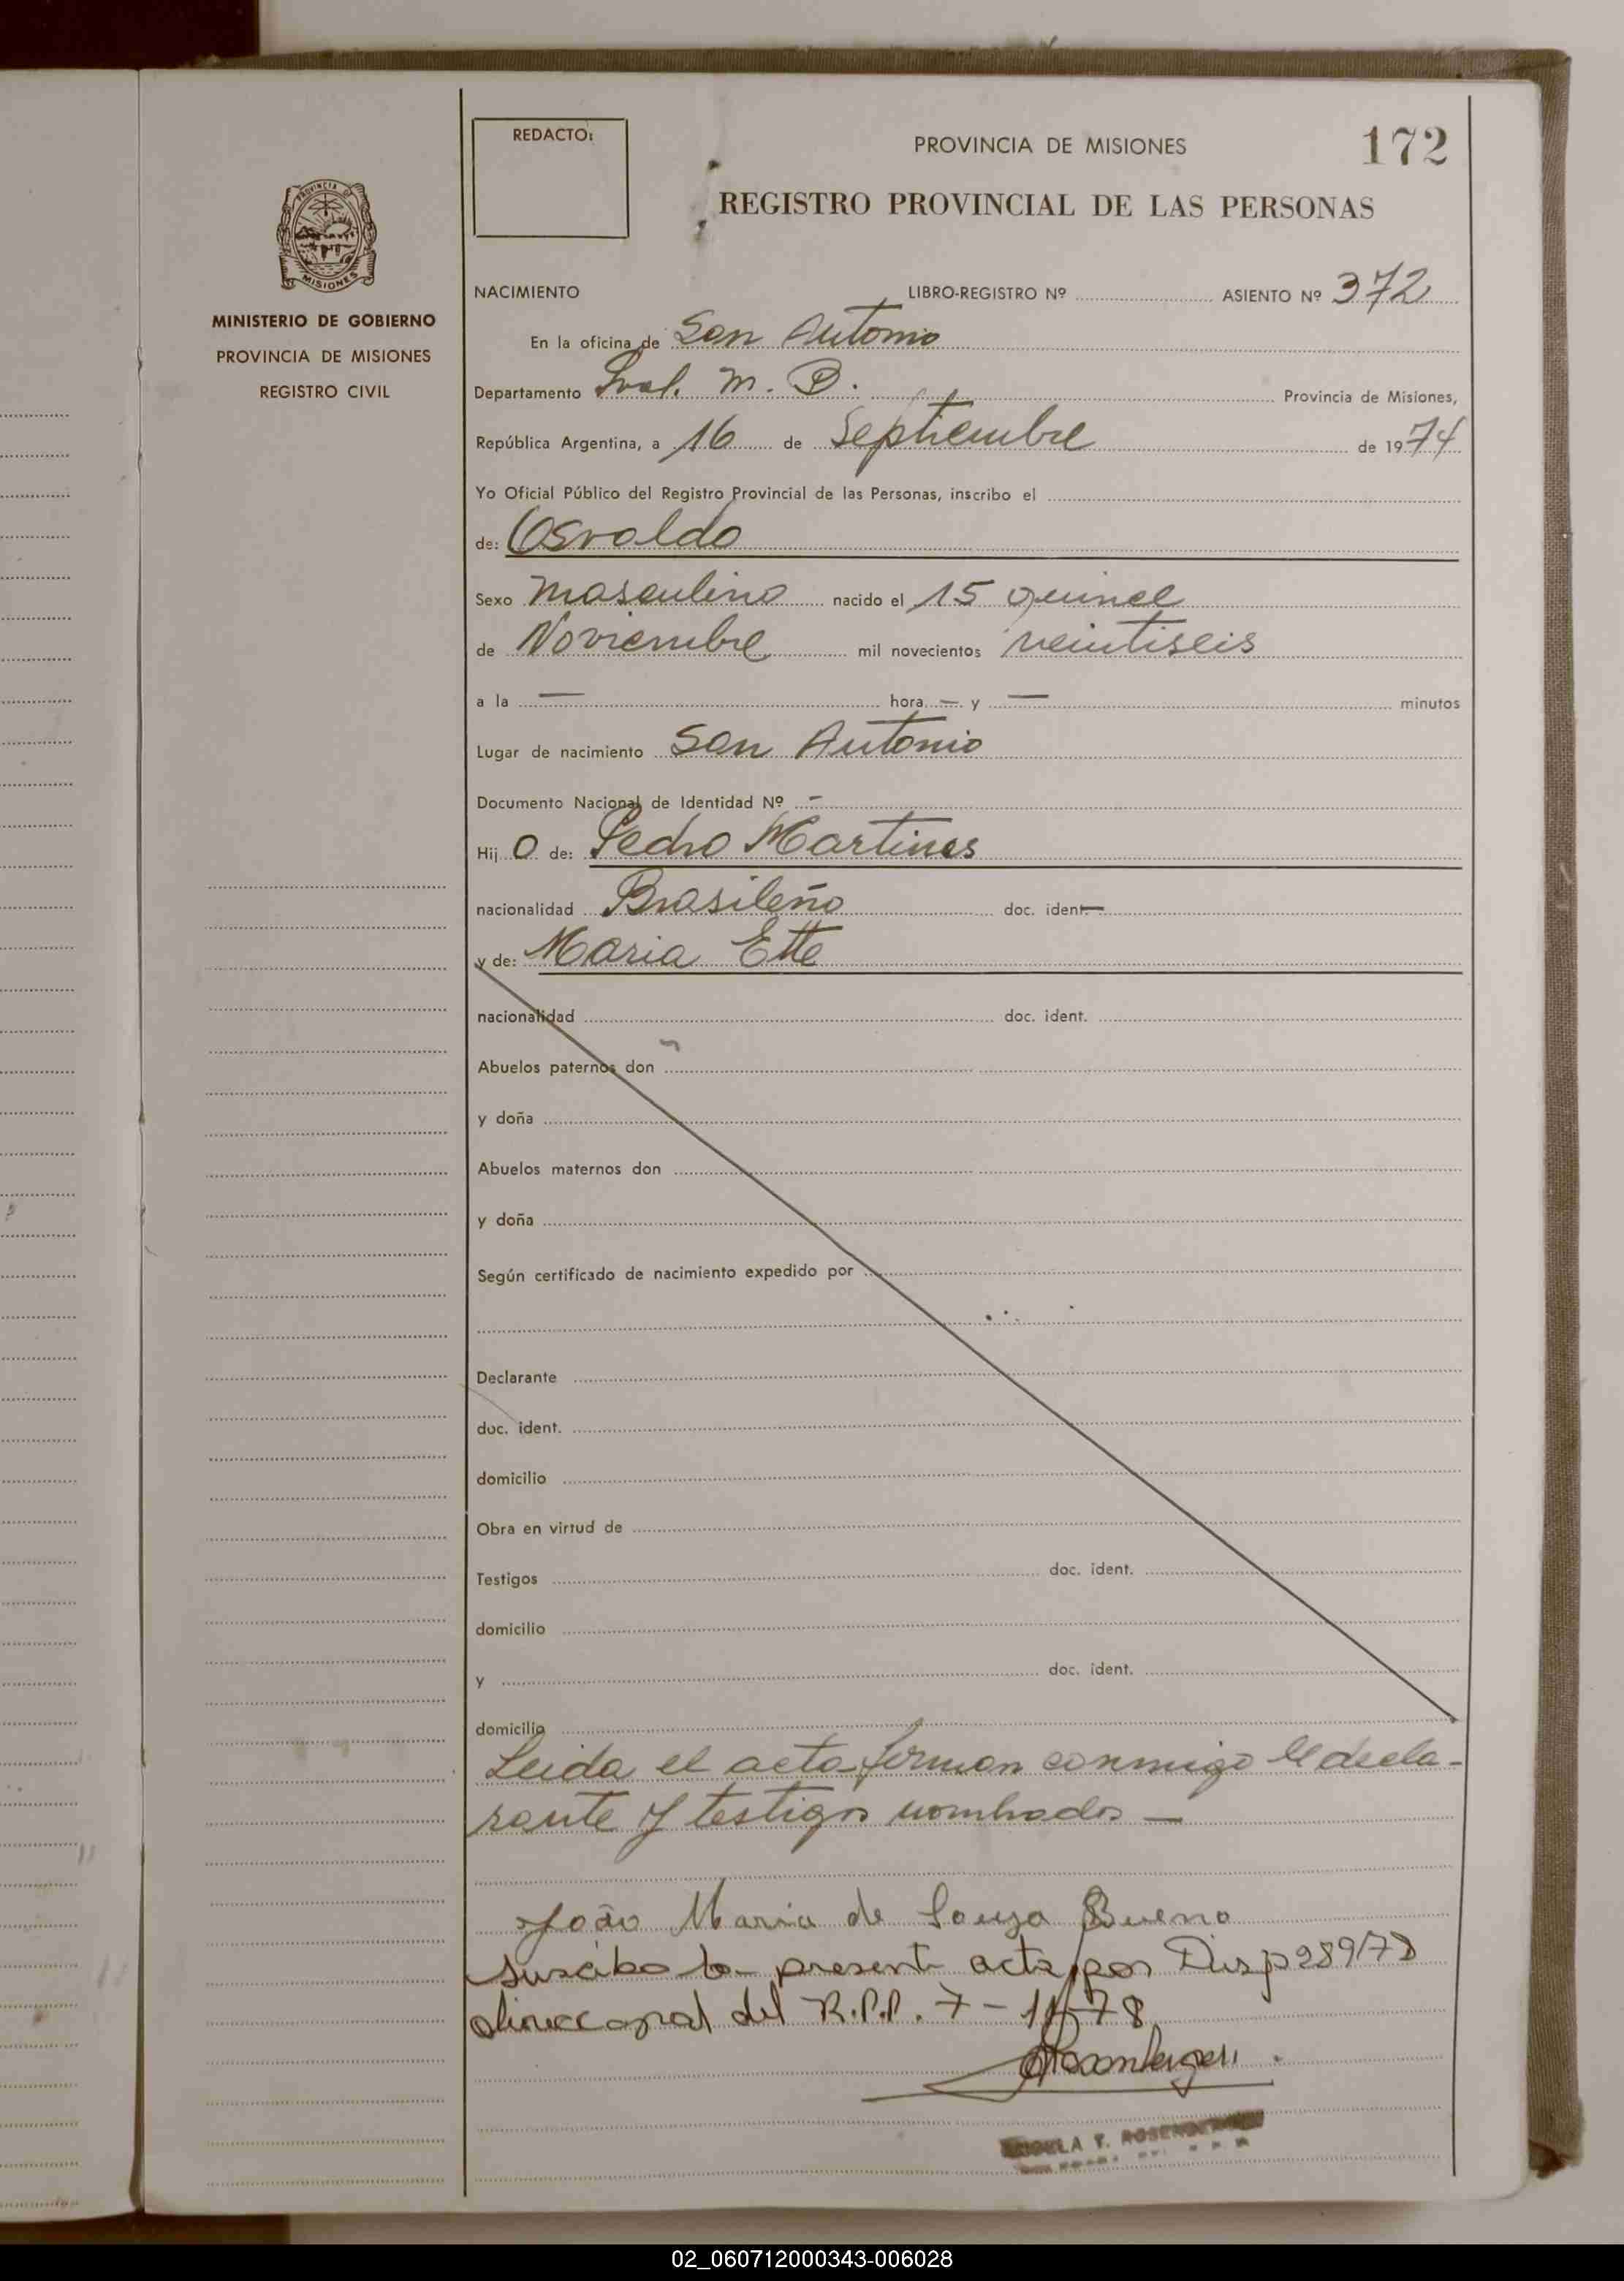 REDACTO:
PROVINCIA DE MISIONES
172
REGISTRO PROVINCIAL DE LAS PERSONAS
PROVINCIA DE
MISIONES
MINISTERIO DE GOBIERNO
PROVINCIA DE MISIONES
REGISTRO CIVIL
NACIMIENTO LIBRO-REGISTRO Nº ASIENTO Nº 372
En la oficina de San Antonio
Departamento Gral. M. B. Provincia de Misiones,
República Argentina, a 16 de Septiembre de 1974
Yo Oficial Público del Registro Provincial de las Personas, inscribo el
de: Osvaldo
Sexo Masculino nacido el 15 quince
de Noviembre mil novecientos veintiseis
a la — hora — y — minutos
Lugar de nacimiento San Antonio
Documento Nacional de Identidad Nº -
Hij o de: Pedro Martines
nacionalidad Brasileño doc. ident. —
y de: Maria Ette
nacionalidad doc. ident.
Abuelos paternos don
y doña
Abuelos maternos don
y doña
Según certificado de nacimiento expedido por
Declarante
doc. ident.
domicilio
Obra en virtud de
Testigos doc. ident.
domicilio
y doc. ident.
domicilio
Leida el acta firman conmigo el decla-
rante y testigos nombrados —
João Maria de Souza Bueno
suscribo la presente acta por Disp 289/78
del R.P.P. 7-11-78
T. ROSENBERGER
02_060712000343-006028